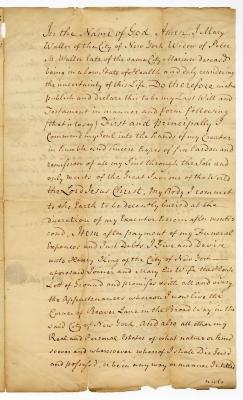 In the Name of God Amen I Mary
Waller of the City of New York Widow of Peter
M. Waller late of the same City Mariner deceased
being in a low State of Health and duly considering
the uncertainty of this Life Do therefore make
publish and declare this to be my Last Will and
Testament in manner and form following
that is to say First and principally I
Commend my Soul into the hands of my Creator
in humble and sincere hopes of full pardon and
remission of all my Sins through the Sole and
only merits of the Great Saviour of the World
the Lord Jesus Christ, My Body I commit
to the Earth to be decently buried at the
discretion of my Executor herein after mentio
ned, Item after payment of my Funeral
Expences and Just Debts I Give and Devise
unto Henry King of the City of New York
aforesaid and Mary his Wife that
Lot of Ground and premises with all and every
the Appurtenances whereon I now live the
Corner of Beaver Lane in the Broad Way in the
said City of New York And also all other my
Real and Personal Estates of what nature or kind
soever and wheresoever whereof I shall Die Seized
and possessed, or be in any way or manner Intitled
unto